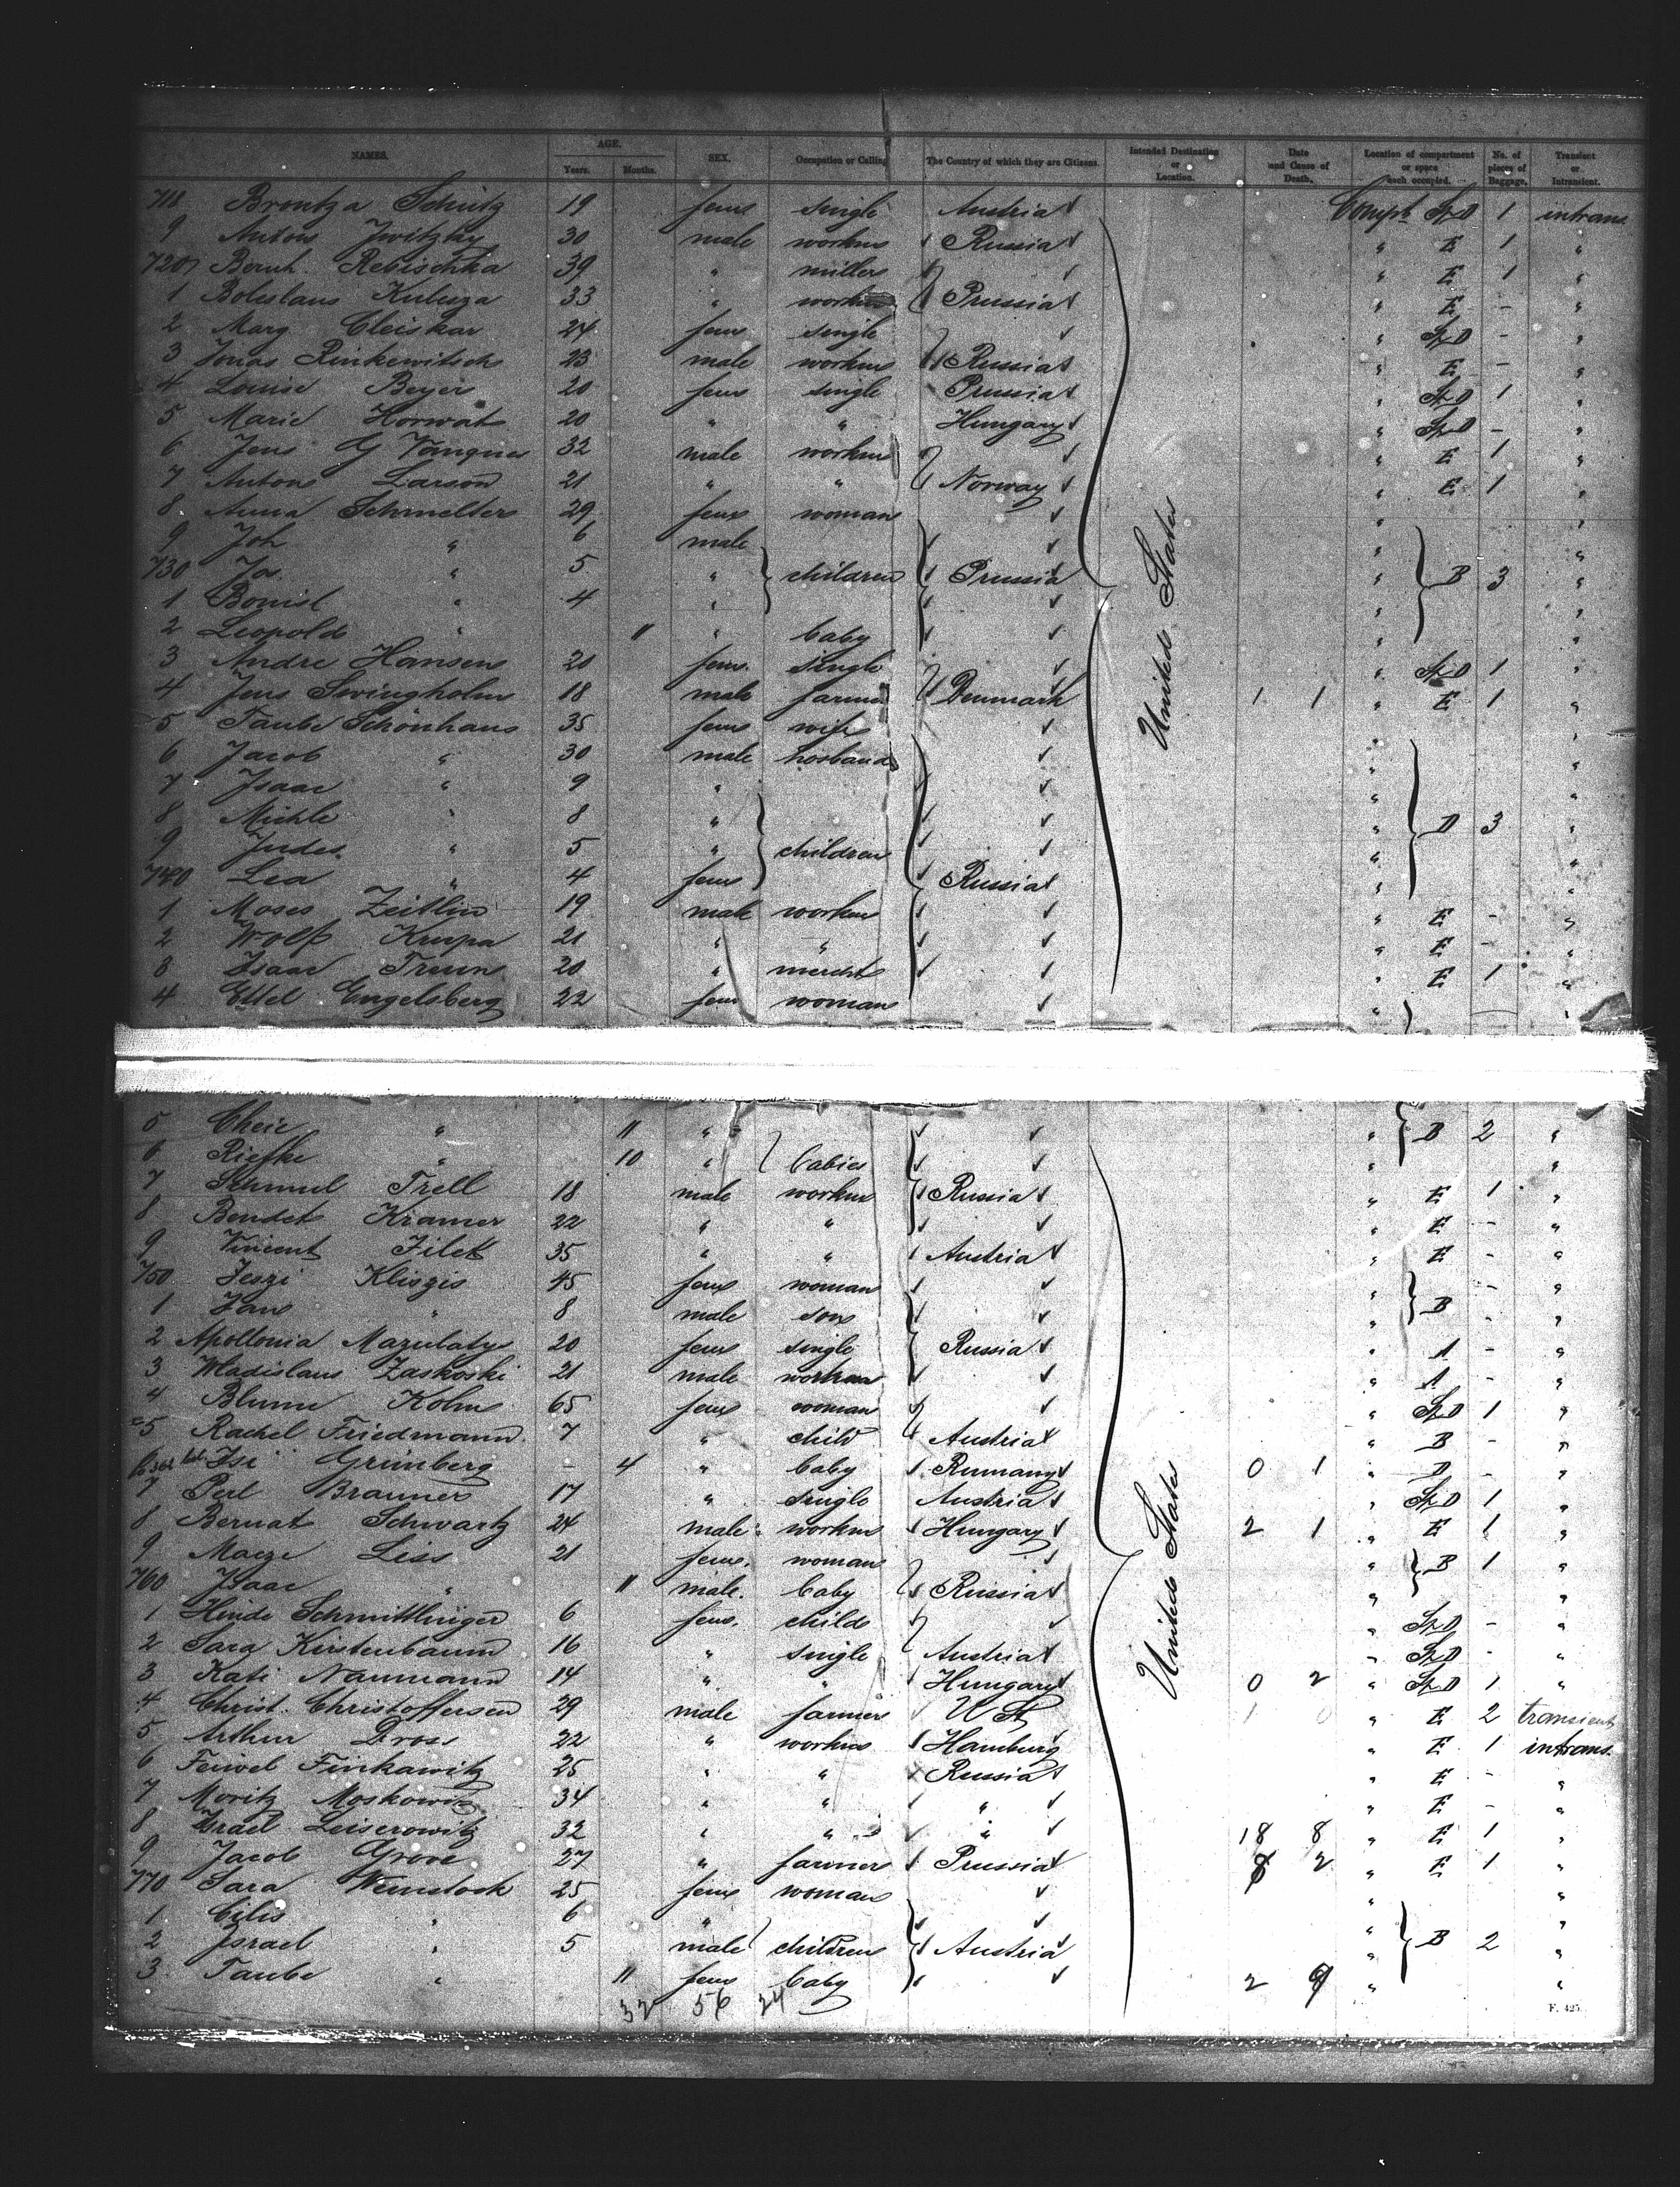 NAMES. AGE. Years. Months. SEX. Occupation or Calling The Country of which they are Citizens. Intended Destination or Location. Date and Cause of Death. Location of compartment or space each occupied. No. of pieces of Baggage. Transient or Intransient.
718 Brontza Schütz 19 fem single Austria Compt StD 1 intrans.
9 Anton 30 male workm Russia " E 1 "
720 Bernh. Rebischka 39 " miller " E 1 "
1 Boleslaus Kubuza 33 " workm Prussia " E - "
2 Marg Cleiskar 24 fem single " StD - "
3 Jonas Rinkewitsch 23 male workm Russia " E - "
4 Louise Beyer 20 fem single Prussia " StD 1 "
5 Marie Horwat 20 " " Hungary " StD - "
6 Jens G 32 male workm " E 1 "
7 Anton Larson 21 " " Norway " E 1 "
8 Anna Schmelter 29 fem woman " "
9 Joh " 6 male " "
730 Jos. " 5 " children Prussia " B 3 "
1 " 4 " " "
2 Leopold " 11 " baby " "
3 Andre Hansen 20 fem. single " StD 1 "
4 Jens Svingholm 18 male farmer Denmark 1 1 " E 1 "
5 Taube Schönhaus 35 fem wife " "
6 Jacob " 30 male husband " "
7 Isaac " 9 " " "
8 Michle " 8 " " D 3 "
9 Judes " 5 " children " "
740 Lea " 4 fem Russia " "
1 Moses Zeitlin 19 male workm " E - "
2 Wolf Krupa 21 " " " E - "
3 Isaac Trun 20 " mercht " E 1 "
4 Ettel Engelsberg 22 fem woman " "
United States
5 Cheie " 11 " " B 2 "
6 Riefke " 10 " babies " "
7 Schmul Trell 18 male workm Russia " E 1 "
8 Bendet Kramer 22 " " " E - "
9 Vincent Filek 35 " " Austria " E - "
750 Jeszi Kliszis 45 fem woman " B - "
1 Jans " 8 male son " - "
2 Apollonia Mazulatys 20 fem single Russia " A - "
3 Wladislaus Zaskoski 21 male workman " A - "
4 Blume Kohn 65 fem woman " StD 1 "
5 Rachel Friedmann 7 " child Austria " B - "
6 Isi Grünberg - 4 " baby Rumany 0 1 " D - "
7 Perl Brauner 17 " single Austria " StD 1 "
8 Bernat Schwartz 24 male workm Hungary 2 1 " E 1 "
9 Liss 21 fem. woman " B 1 "
760 Isaac " 11 male. baby Russia " "
1 Hinde Schmittlinger 6 fem. child " StD - "
2 Sara Kirstenbaum 16 " single Austria " StD - "
3 Kati Naumann 14 " " Hungary 0 2 " StD 1 "
4 Christ. Christoffersen 29 male farmer U St 1 0 " E 2 transient
5 Arthur Dross 22 " workm Hamburg " E 1 intrans.
6 Feiwel Finkawitz 25 " " Russia " E - "
7 Moritz Moskowitz 34 " " " " E - "
8 Israel Leiserowitz 32 " " " 18 8 " E 1 "
9 Jacob Grove 27 " farmer Prussia 8 2 " E 1 "
770 Sara Weinstock 25 fem woman " "
1 Cilis " 6 " " "
2 Israel " 5 male children Austria " B 2 "
3 Taube " 11 fem baby 2 9 " "
United States
32 56 24
F. 425.